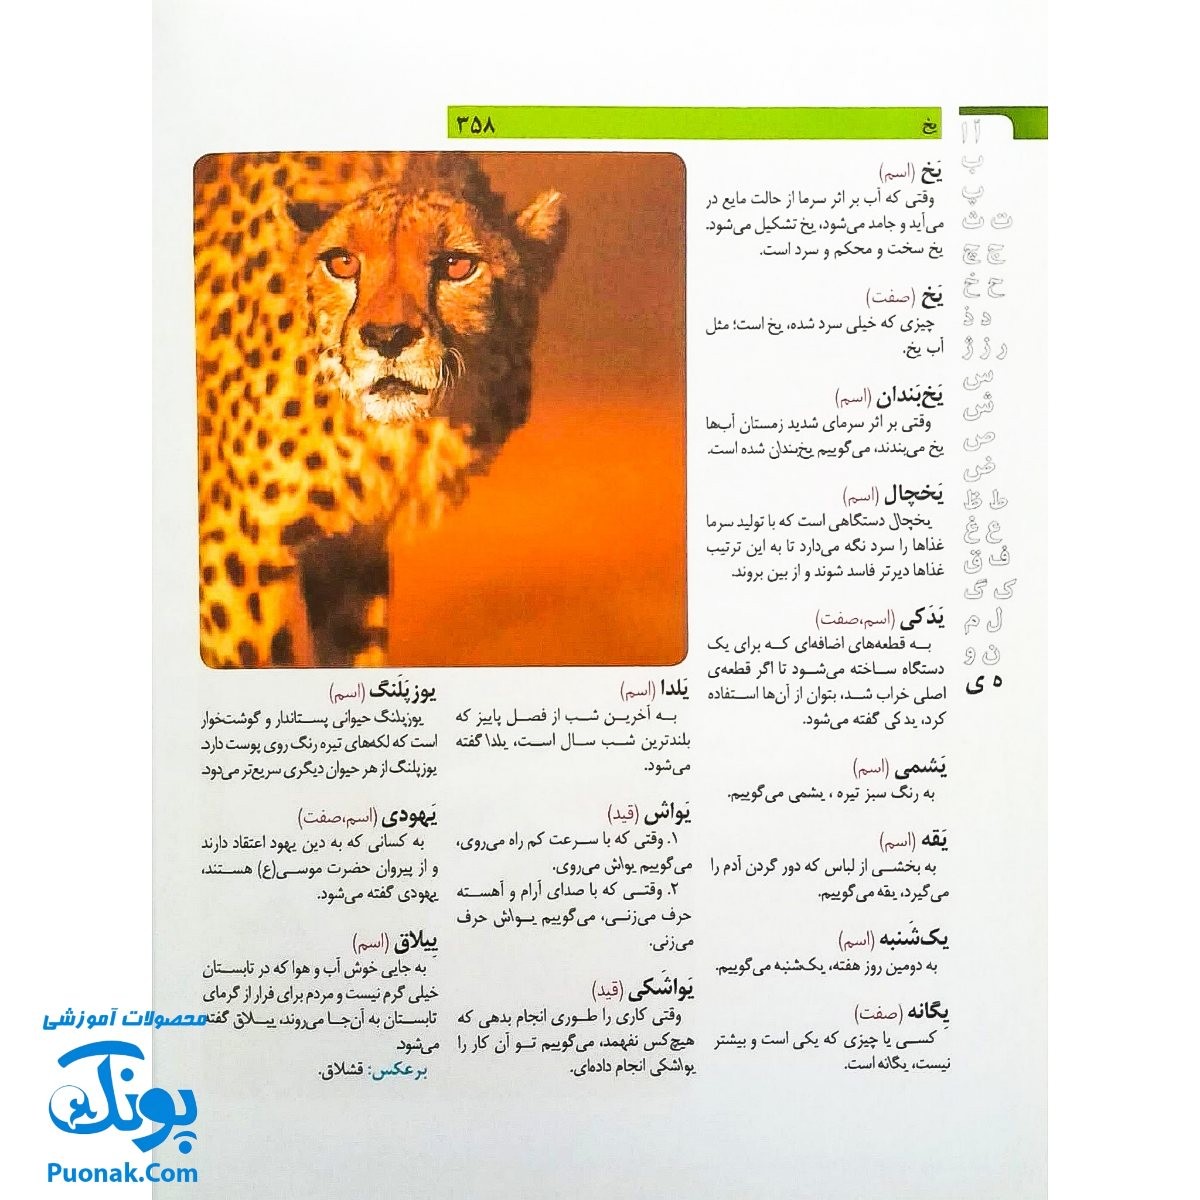 یخ
۳۵۸
یَخ (اسم)
وقتی که آب بر اثر سرما از حالت مایع در
می‌آید و جامد می‌شود، یخ تشکیل می‌شود.
یخ سخت و محکم و سرد است.
یَخ (صفت)
چیزی که خیلی سرد شده، یخ است؛ مثل
آب یخ.
یَخ‌بَندان (اسم)
وقتی بر اثر سرمای شدید زمستان آب‌ها
یخ می‌بندند، می‌گوییم یخ‌بندان شده است.
یَخچال (اسم)
یخچال دستگاهی است که با تولید سرما
غذاها را سرد نگه می‌دارد تا به این ترتیب
غذاها دیرتر فاسد شوند و از بین بروند.
یَدَکی (اسم،صفت)
به قطعه‌های اضافه‌ای که برای یک
دستگاه ساخته می‌شود تا اگر قطعه‌ی
اصلی خراب شد، بتوان از آن‌ها استفاده
کرد، یدکی گفته می‌شود.
یَشمی (اسم)
به رنگ سبز تیره ، یشمی می‌گوییم.
یَقه (اسم)
به بخشی از لباس که دور گردن آدم را
می‌گیرد، یقه می‌گوییم.
یک‌شَنبه (اسم)
به دومین روز هفته، یک‌شنبه می‌گوییم.
یِگانه (صفت)
کسی یا چیزی که یکی است و بیشتر
نیست، یگانه است.
یَلدا (اسم)
به آخرین شب از فصل پاییز که
بلندترین شب سال است، یلدا گفته
می‌شود.
یَواش (قید)
۱. وقتی که با سرعت کم راه می‌روی،
می‌گوییم یواش می‌روی.
۲. وقتی که با صدای آرام و آهسته
حرف می‌زنی، می‌گوییم یواش حرف
می‌زنی.
یَواشَکی (قید)
وقتی کاری را طوری انجام بدهی که
هیچ‌کس نفهمد، می‌گوییم تو آن کار را
یواشکی انجام داده‌ای.
یوزپَلَنگ (اسم)
یوزپلنگ حیوانی پستاندار و گوشت‌خوار
است که لکه‌های تیره رنگ روی پوست دارد.
یوزپلنگ از هر حیوان دیگری سریع‌تر می‌دود.
یَهودی (اسم،صفت)
به کسانی که به دین یهود اعتقاد دارند
و از پیروان حضرت موسی(ع) هستند،
یهودی گفته می‌شود.
یِیلاق (اسم)
به جایی خوش آب و هوا که در تابستان
خیلی گرم نیست و مردم برای فرار از گرمای
تابستان به آن‌جا می‌روند، ییلاق گفته
می‌شود.
برعکس: قشلاق.
آ ا
ب
پ
ت ث
ج چ
ح خ
د ذ
ر ز ژ
س
ش
ص
ض
ط ظ
ع غ
ف ق
ک گ
ل م
ن و
ه ی
محصولات آموزشی
پونک
Puonak.Com